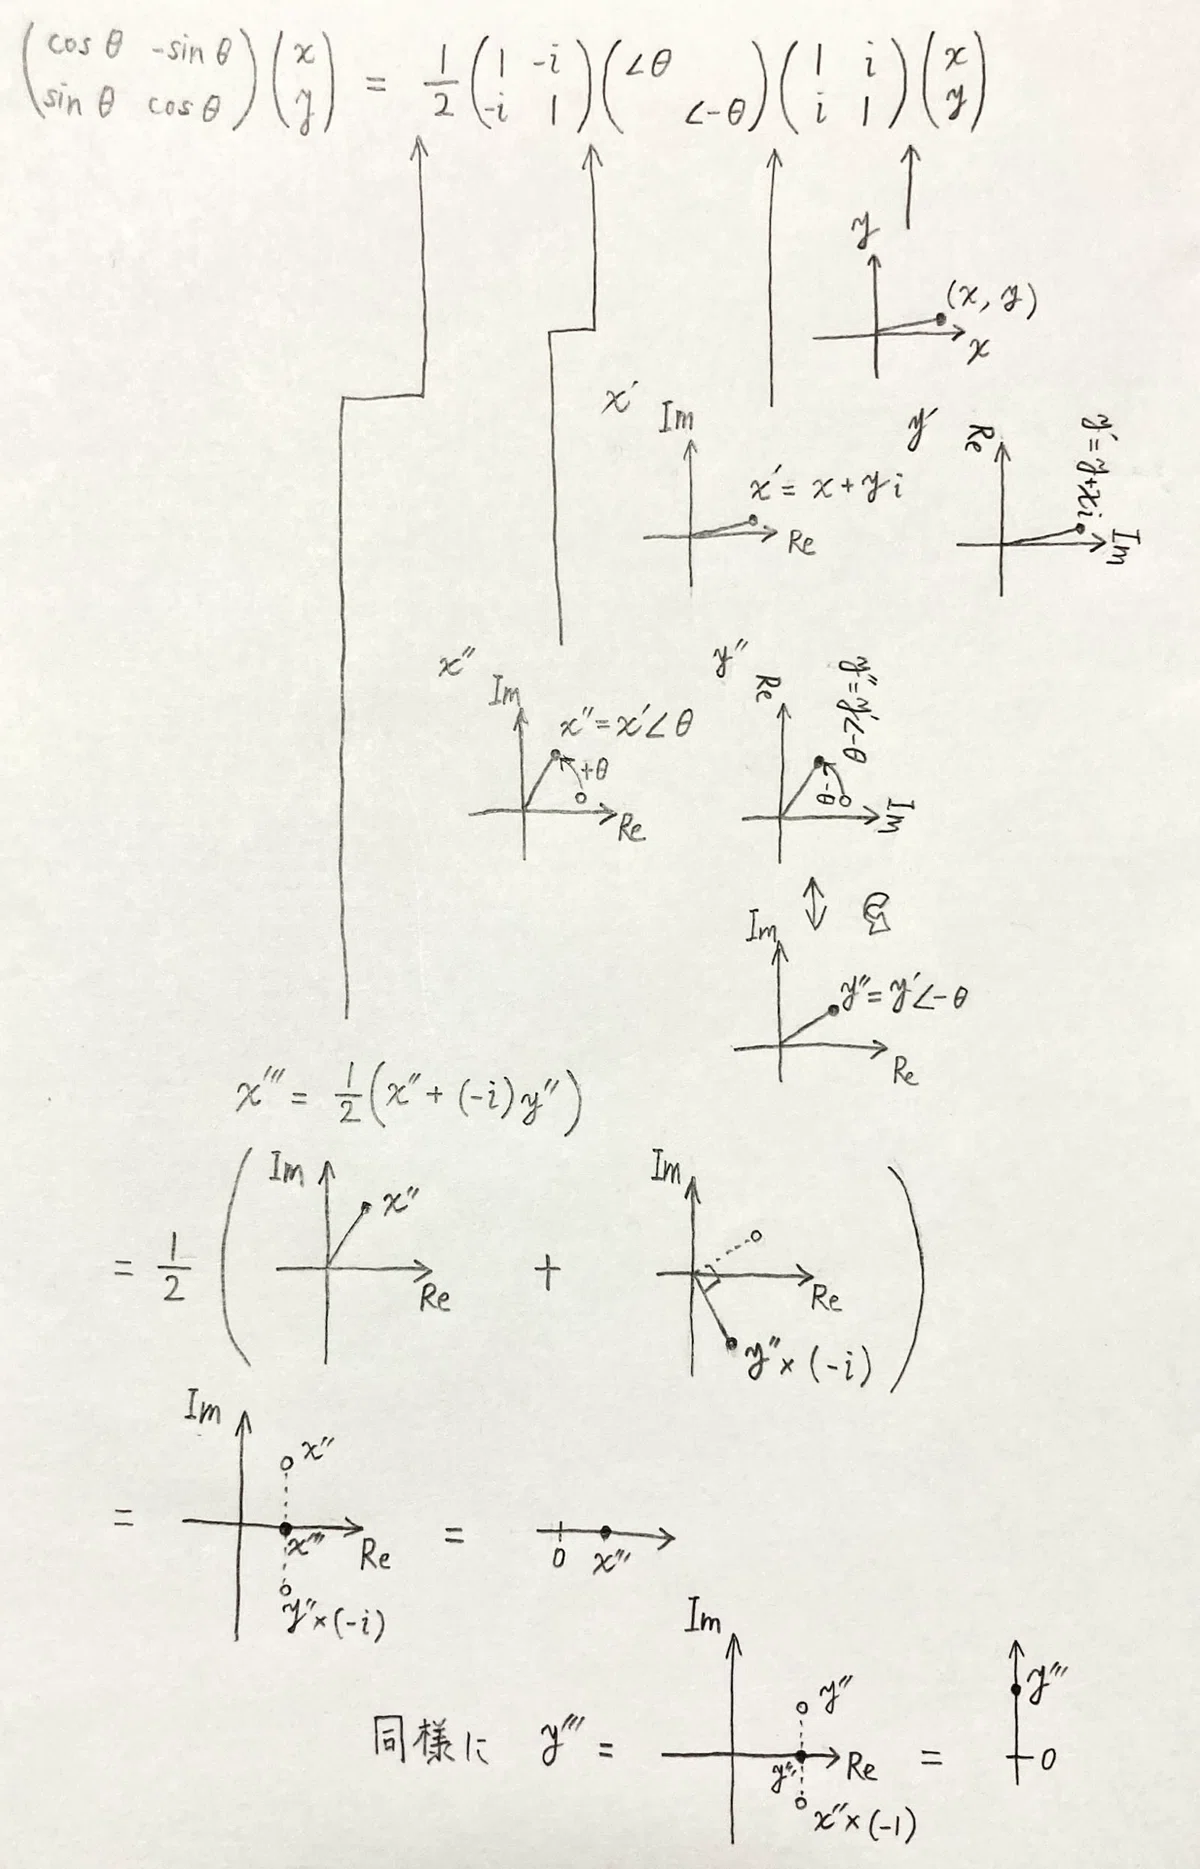 (cos θ -sin θ / sin θ cos θ)(x / y) = 1/2 (1 -i / -i 1)(∠θ / ∠-θ)(1 i / i 1)(x / y)
y
(x, y)
x
x′
Im
x′ = x + y i
Re
y′
Re
y′ = y + x i
Im
x″
Im
x″ = x′∠θ
+θ
Re
y″
Re
y″ = y′∠-θ
-θ
Im
↕
Im
y″ = y′∠-θ
Re
x‴ = 1/2 (x″ + (-i) y″)
= 1/2 (
Im
x″
Re
+
Im
Re
y″ × (-i)
)
=
Im
x″
x‴
Re
y″ × (-i)
=
0
x‴
同様に y‴ =
Im
y″
y‴
Re
x″ × (-1)
=
y‴
0